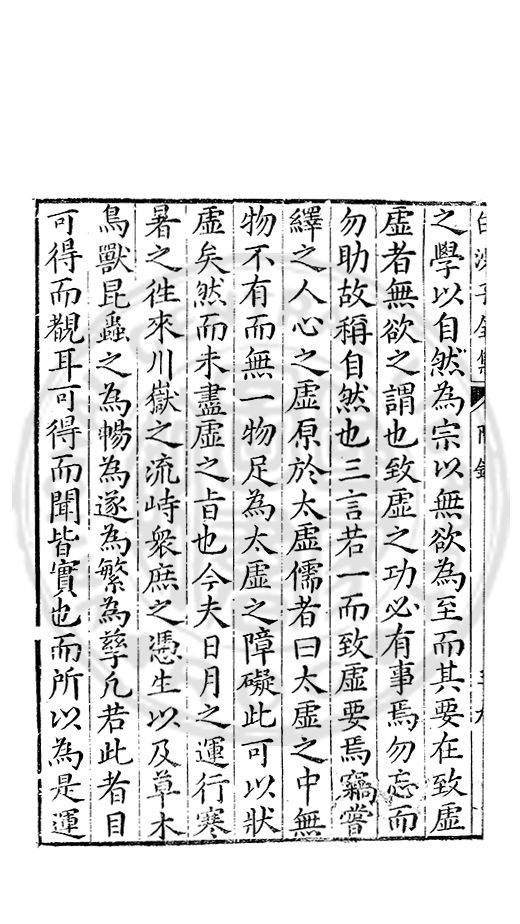 白沙子全集 附錄
之學以自然為宗以無欲為至而其要在致虛
虛者無欲之謂也致虛之功必有事焉勿忘而
勿助故稱自然也三言若一而致虛要焉竊嘗
繹之人心之虛原於太虛儒者曰太虛之中無
物不有而無一物足為太虛之障礙此可以狀
虛矣然而未盡虛之旨也今夫日月之運行寒
暑之徃來川嶽之流峙衆庶之憑生以及草木
鳥獸昆蟲之為暢為遂為繁為孳凡若此者目
可得而覩耳可得而聞皆實也而所以為是運